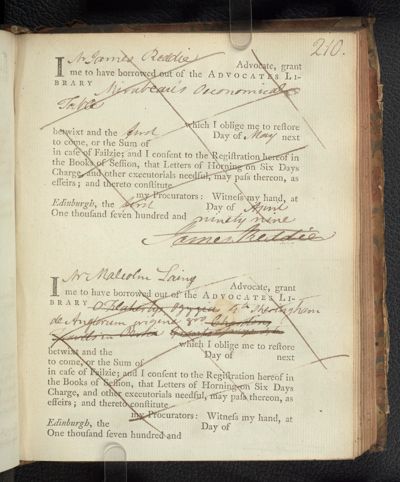 210.
I Mr James Reddie Advocate, grant
me to have borrowed out of the ADVOCATES LI-
BRARY Mirabeau's Oeconomical
Table
betwixt and the first which I oblige me to restore
Day of May next
to come, or the Sum of
in case of Failzie; and I consent to the Registration hereof in
the Books of Session, that Letters of Horning on Six Days
Charge, and other executorials needful, may pass thereon, as
effeirs; and thereto constitute
my Procurators: Witness my hand, at
Edinburgh, the first Day of April
One thousand seven hundred and
ninety nine
James Reddie
I Mr Malcolm Laing Advocate, grant
me to have borrowed out of the ADVOCATES LI-
BRARY 4to Sheringham
de Anglorum origine
betwixt and the which I oblige me to restore
Day of next
to come, or the Sum of
in case of Failzie; and I consent to the Registration hereof in
the Books of Session, that Letters of Horning on Six Days
Charge, and other executorials needful, may pass thereon, as
effeirs; and thereto constitute
my Procurators: Witness my hand, at
Edinburgh, the Day of
One thousand seven hundred and